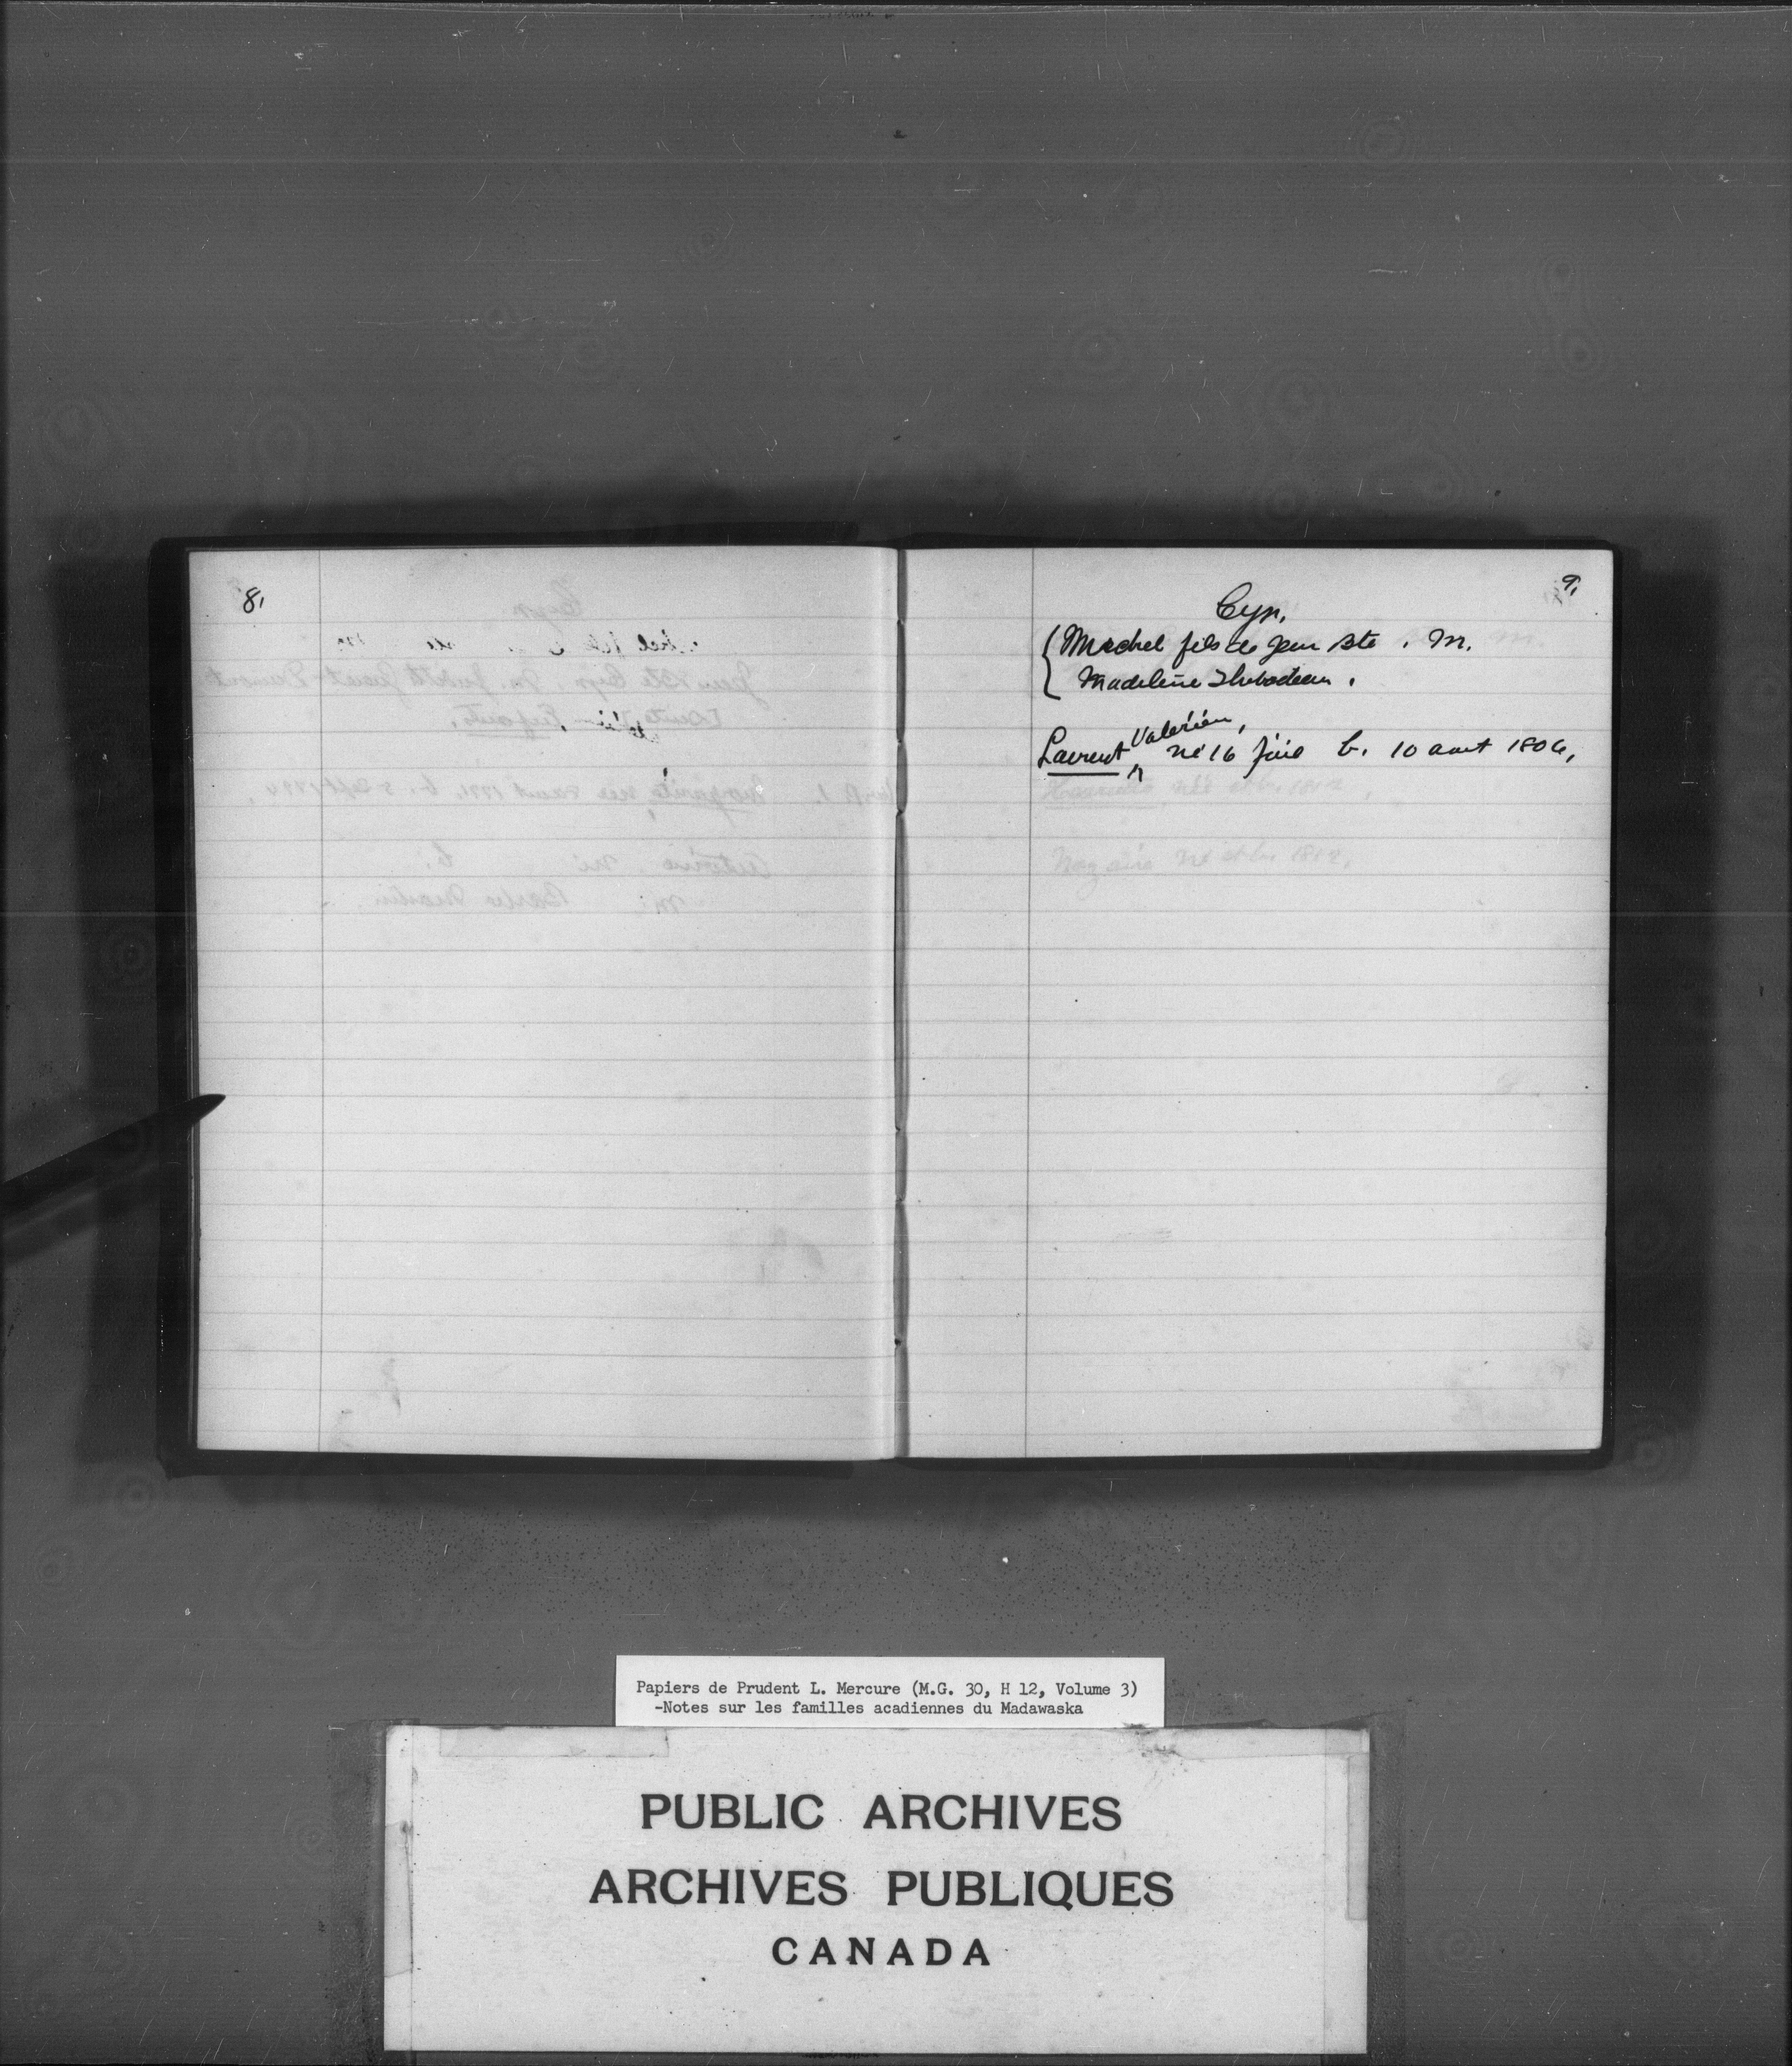 8,
9,
Cyr,
Michel fils de Jean Bte. M.
Madeleine Thibodeau.
Valérien,
Laurent né 16 juil b. 10 aout 1806,
né et b. 1812,
Nazaire né et b. 1812,
Papiers de Prudent L. Mercure (M.G. 30, H 12, Volume 3)
-Notes sur les familles acadiennes du Madawaska
PUBLIC ARCHIVES
ARCHIVES PUBLIQUES
CANADA